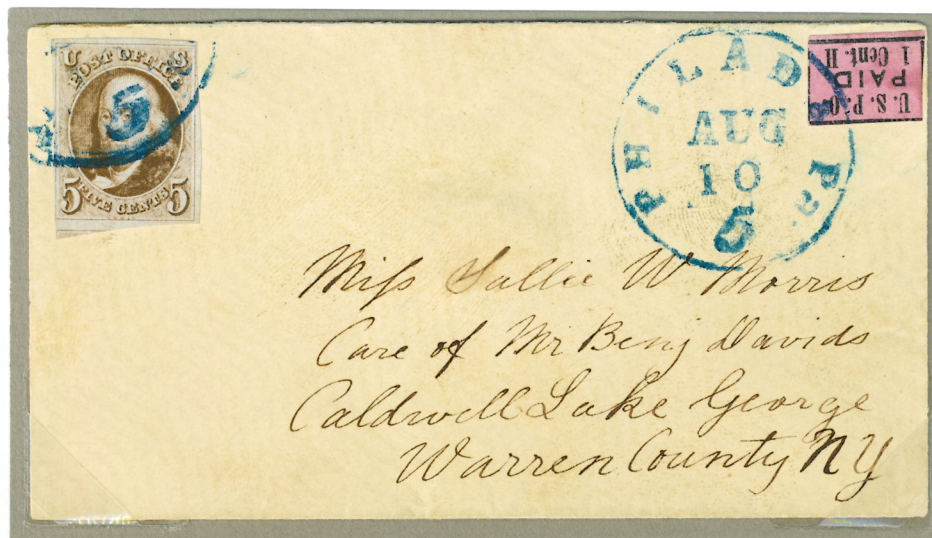 U S
POST OFFICE
5
5 FIVE CENTS 5
PHILADA Pa.
AUG
10
5
U. S. P. O.
PAID
1 Cent. H
Miss Sallie W Morris
Care of Mr Benj Davids
Caldwell Lake George
Warren County NY